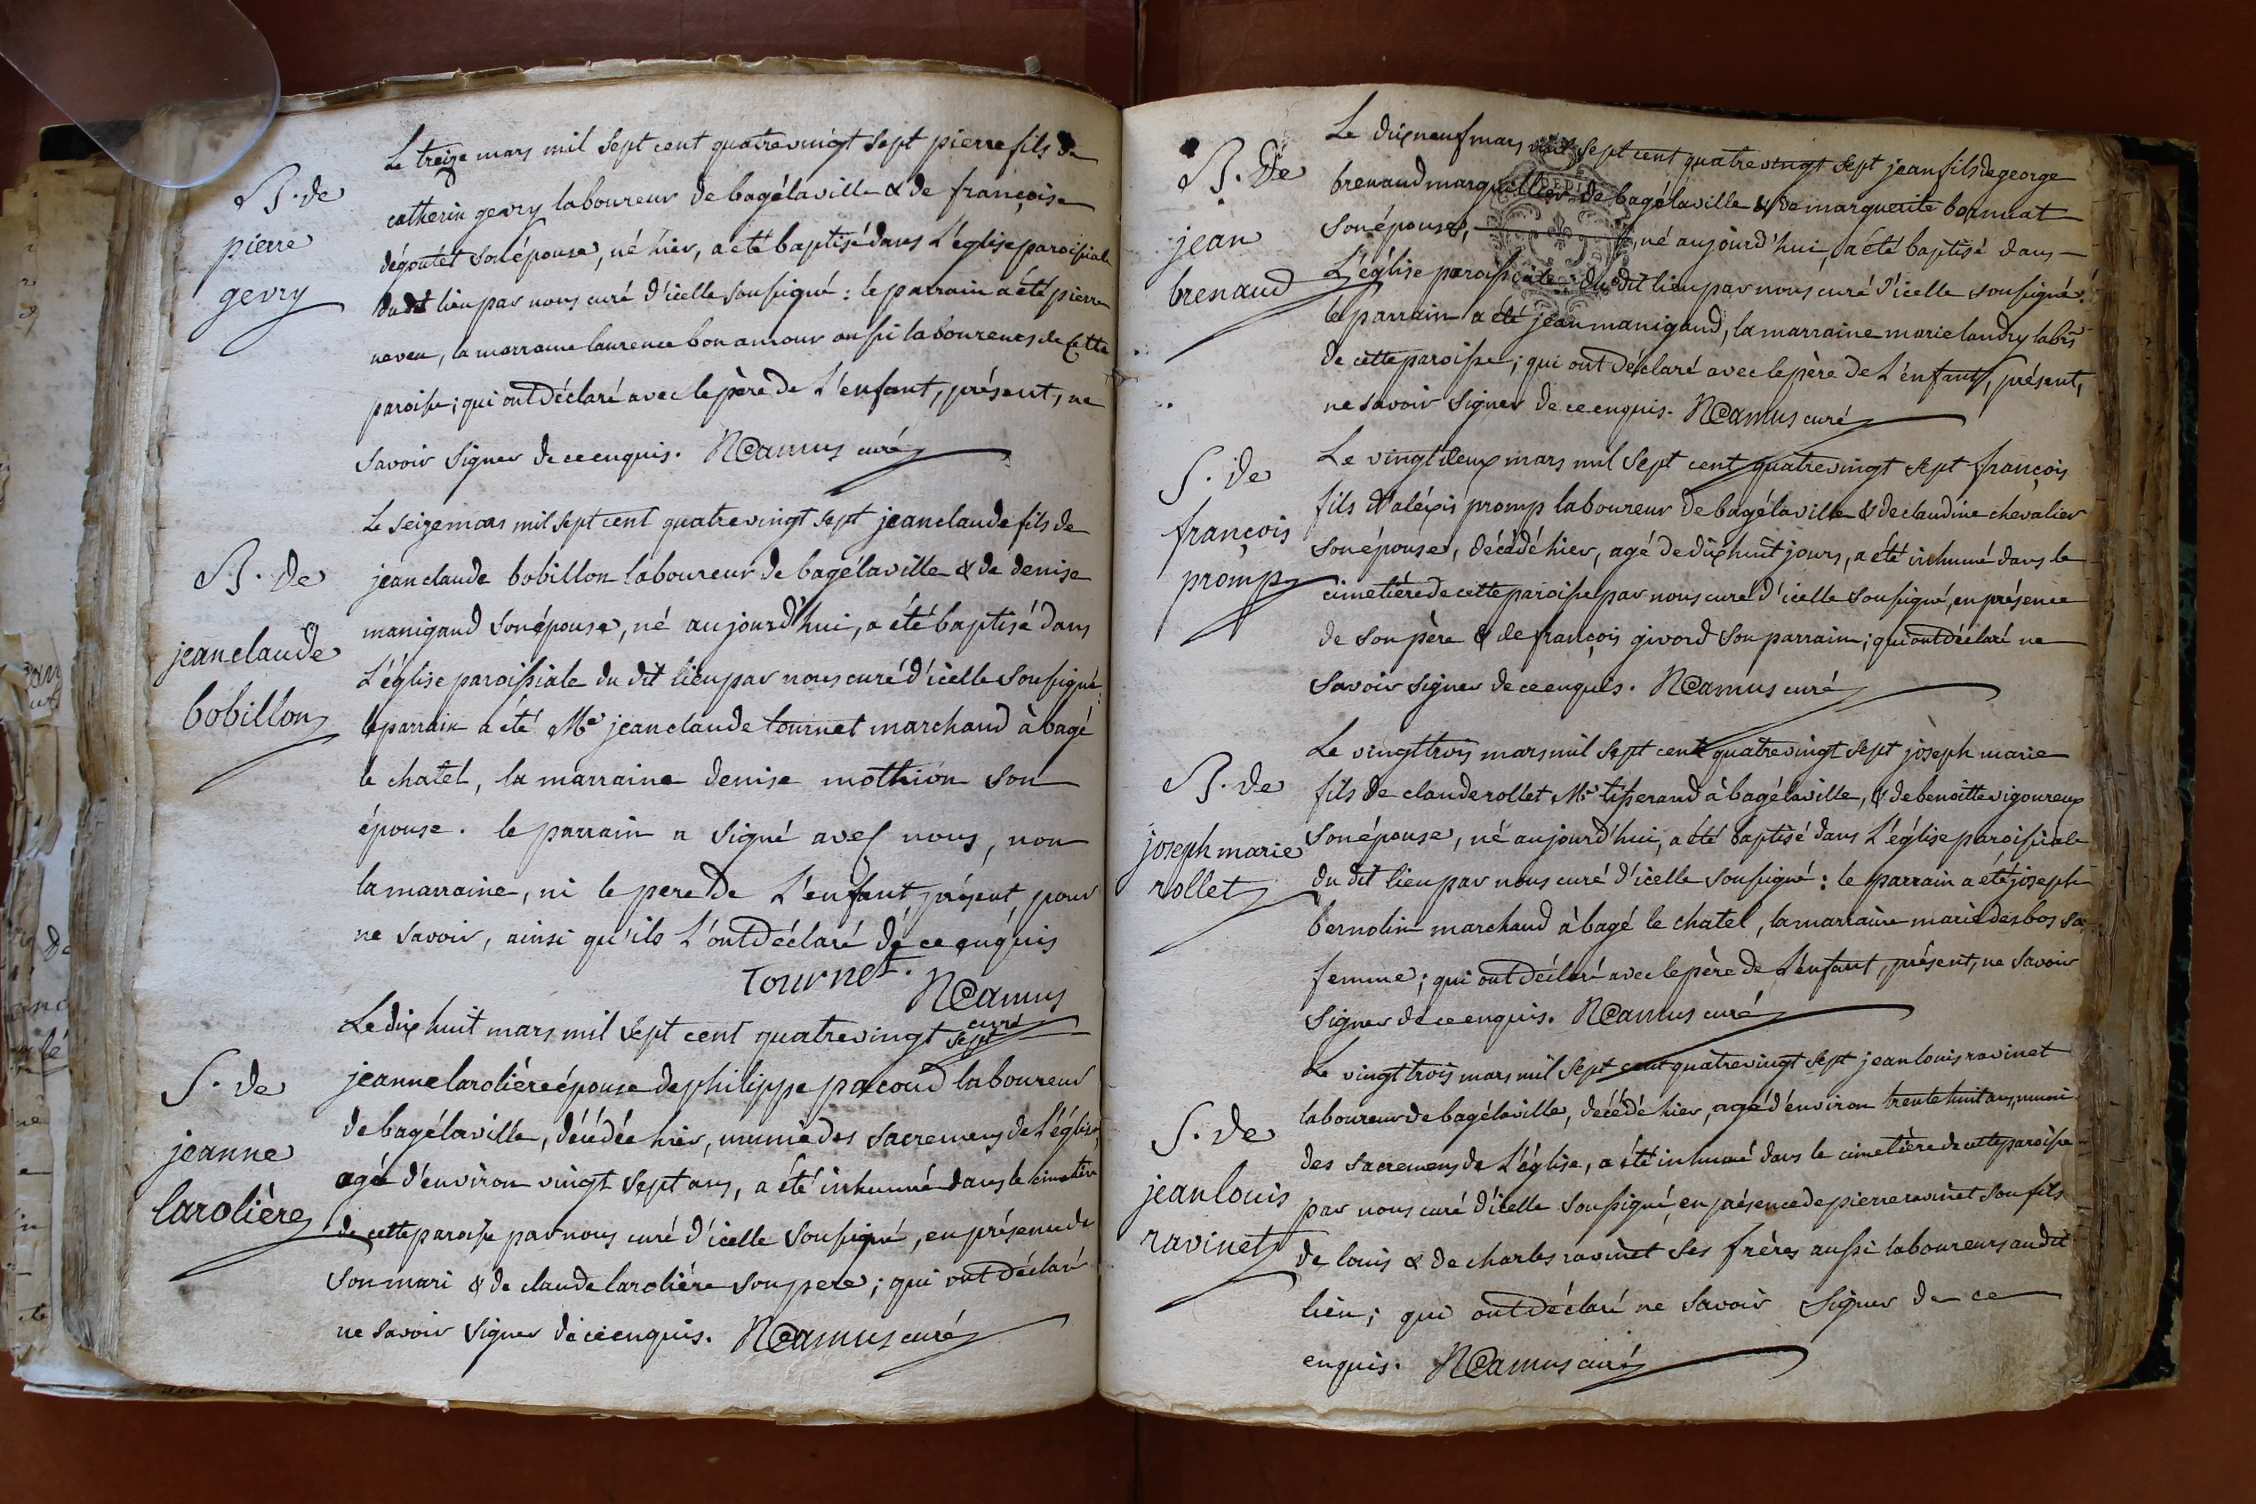 Le treize mars mil sept cent quatrevingt sept pierre fils de
B. de
pierre
gevry
catherin gevry laboureur de bagélaville & de françoise
dégoutet son épouse, né hier, a eté baptisé dans l'église paroissiale
du dit lieu par nous curé d'icelle soussigné : le parrain a été pierre
neveu, la marraine laurence bonamour aussi laboureurs de cette
paroisse ; qui ont déclaré avec le père de l'enfant, présent, ne
savoir signer de ce enquis. NCamus curé
Le seize mars mil sept cent quatrevingt sept jean claude fils de
B. de
jean claude
bobillon
jean claude bobillon laboureur de bagélaville & de denise
manigand son épouse, né aujourd'hui, a été baptisé dans
l'église paroissiale du dit lieu par nous curé d'icelle soussigné :
le parrain a été Me jean claude tournet marchand à bagé
le chatel, la marraine denise mothion son
épouse. le parrain a signé avec nous, non
la marraine, ni le pere de l'enfant présent, pour
ne savoir, ainsi qu'ils l'ont déclaré de ce enquis
Tournet. NCamus
curé
Le dix huit mars mil sept cent quatrevingt sept
S. de
jeanne
larolière
jeanne larolière épouse de philippe pacoud laboureur
de bagélaville, décédée hier, munie des sacremens de l'église,
agée d'environ vingt sept ans, a été inhumée dans le cimetière
de cette paroisse par nous curé d'icelle soussigné, en présence de
son mari & de claude larolière son pere ; qui ont déclaré
ne savoir signer de ce enquis. NCamus curé
Le dix neuf mars mil sept cent quatrevingt sept jean fils de george
B. de
jean
brenaud
brenaud marguillier de bagélaville & de marguerite bonnuat
son épouse, né aujourd'hui, a été baptisé dans
l'église paroissiale du dit lieu par nous curé d'icelle soussigné :
le parrain a été jean manigand, la marraine marie landry labrs
de cette paroisse ; qui ont déclaré avec le père de l'enfant, présent,
ne savoir signer de ce enquis. NCamus curé
Le vingt deux mars mil sept cent quatrevingt sept françois
S. de
françois
promp
fils d'aléxis promp laboureur de bagélaville & de claudine chevalier
son épouse, décédé hier, agé de dix huit jours, a été inhumé dans le
cimetière de cette paroisse par nous curé d'icelle soussigné, en présence
de son père & de françois givord son parrain ; qui ont déclaré ne
savoir signer de ce enquis. NCamus curé
Le vingt trois mars mil sept cent quatrevingt sept joseph marie
B. de
joseph marie
rollet
fils de claude rollet Me tisserand à bagélaville, & de benoitte vigoureux
son épouse, né aujourd'hui, a été baptisé dans l'église paroissiale
du dit lieu par nous curé d'icelle soussigné : le parrain a été joseph
bernolin marchand à bagé le chatel, la marraine marie desbos sa
femme ; qui ont déclaré avec le père de l'enfant, présent, ne savoir
signer de ce enquis. NCamus curé
Le vingt trois mars mil sept cent quatrevingt sept jean louis ravinet
S. de
jean louis
ravinet
laboureur de bagélaville, décédé hier, agé d'environ trente huit ans, muni
des sacremens de l'église, a été inhumé dans le cimetière de cette paroisse
par nous curé d'icelle soussigné, en présence de pierre ravinet son fils
de louis & de charles ravinet ses frères aussi laboureurs au dit
lieu ; qui ont déclaré ne savoir signer de ce
enquis. NCamus curé